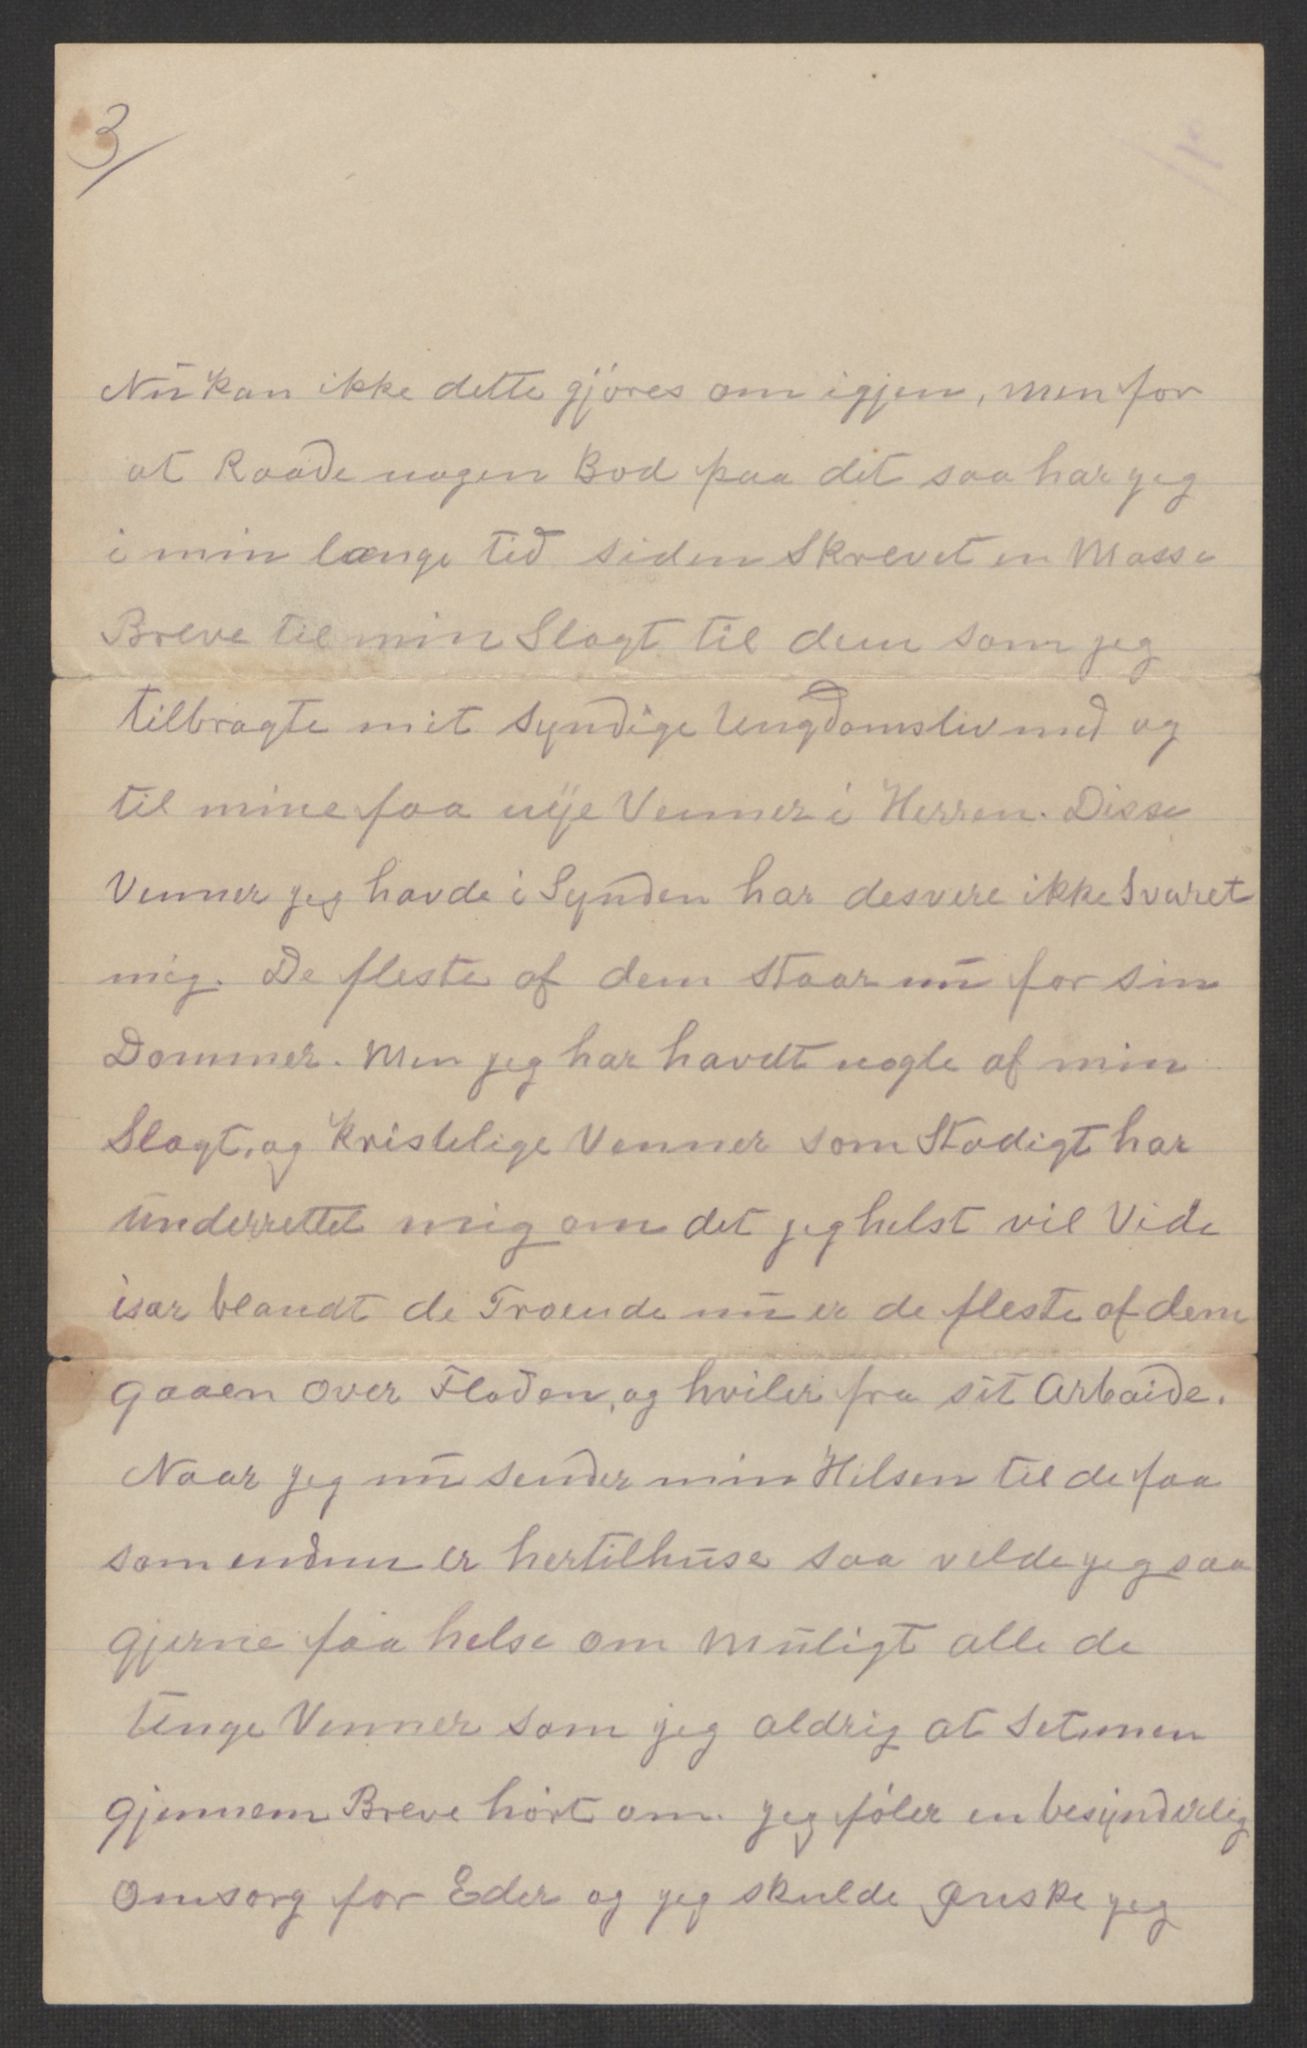 3/
Nu kan ikke dette gjøres om igjen, men for
at Raade nogen Bod paa det saa har jeg
i min lange tid siden Skrevet en Masse
Breve til min Slægt til dem som jeg
tilbragte mit syndige Ungdomsliv med og
til mine faa nye Venner i Herren. Disse
Venner jeg havde i Synden har desvere ikke Svaret
mig. De fleste af dem staar nu for sin
Dommer. Men jeg har havdt nogle af min
Slægt, og Kristelige Venner som Stadigt har
underrettet mig om det jeg helst vil Vide
især blandt de Troende nu er de fleste af dem
gaaen over Floden, og hviler fra sit Arbaide.
Naar jeg nu sender min Hilsen til de faa
som endnu er hertilhuse saa velde jeg saa
gjerne faa helse om muligt alle de
Unge Venner som jeg aldrig at set men
gjennem Breve hørt om. jeg føler en besynderlig
Omsorg for Eder og jeg skulde Ønske jeg